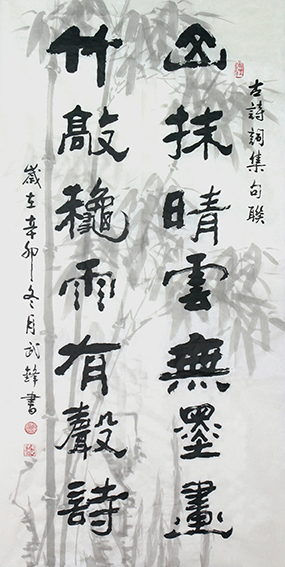 古詩詞集句聯
山抹晴雲無墨畫
竹敲穐雨有聲詩
歲在辛卯冬月武鋒書